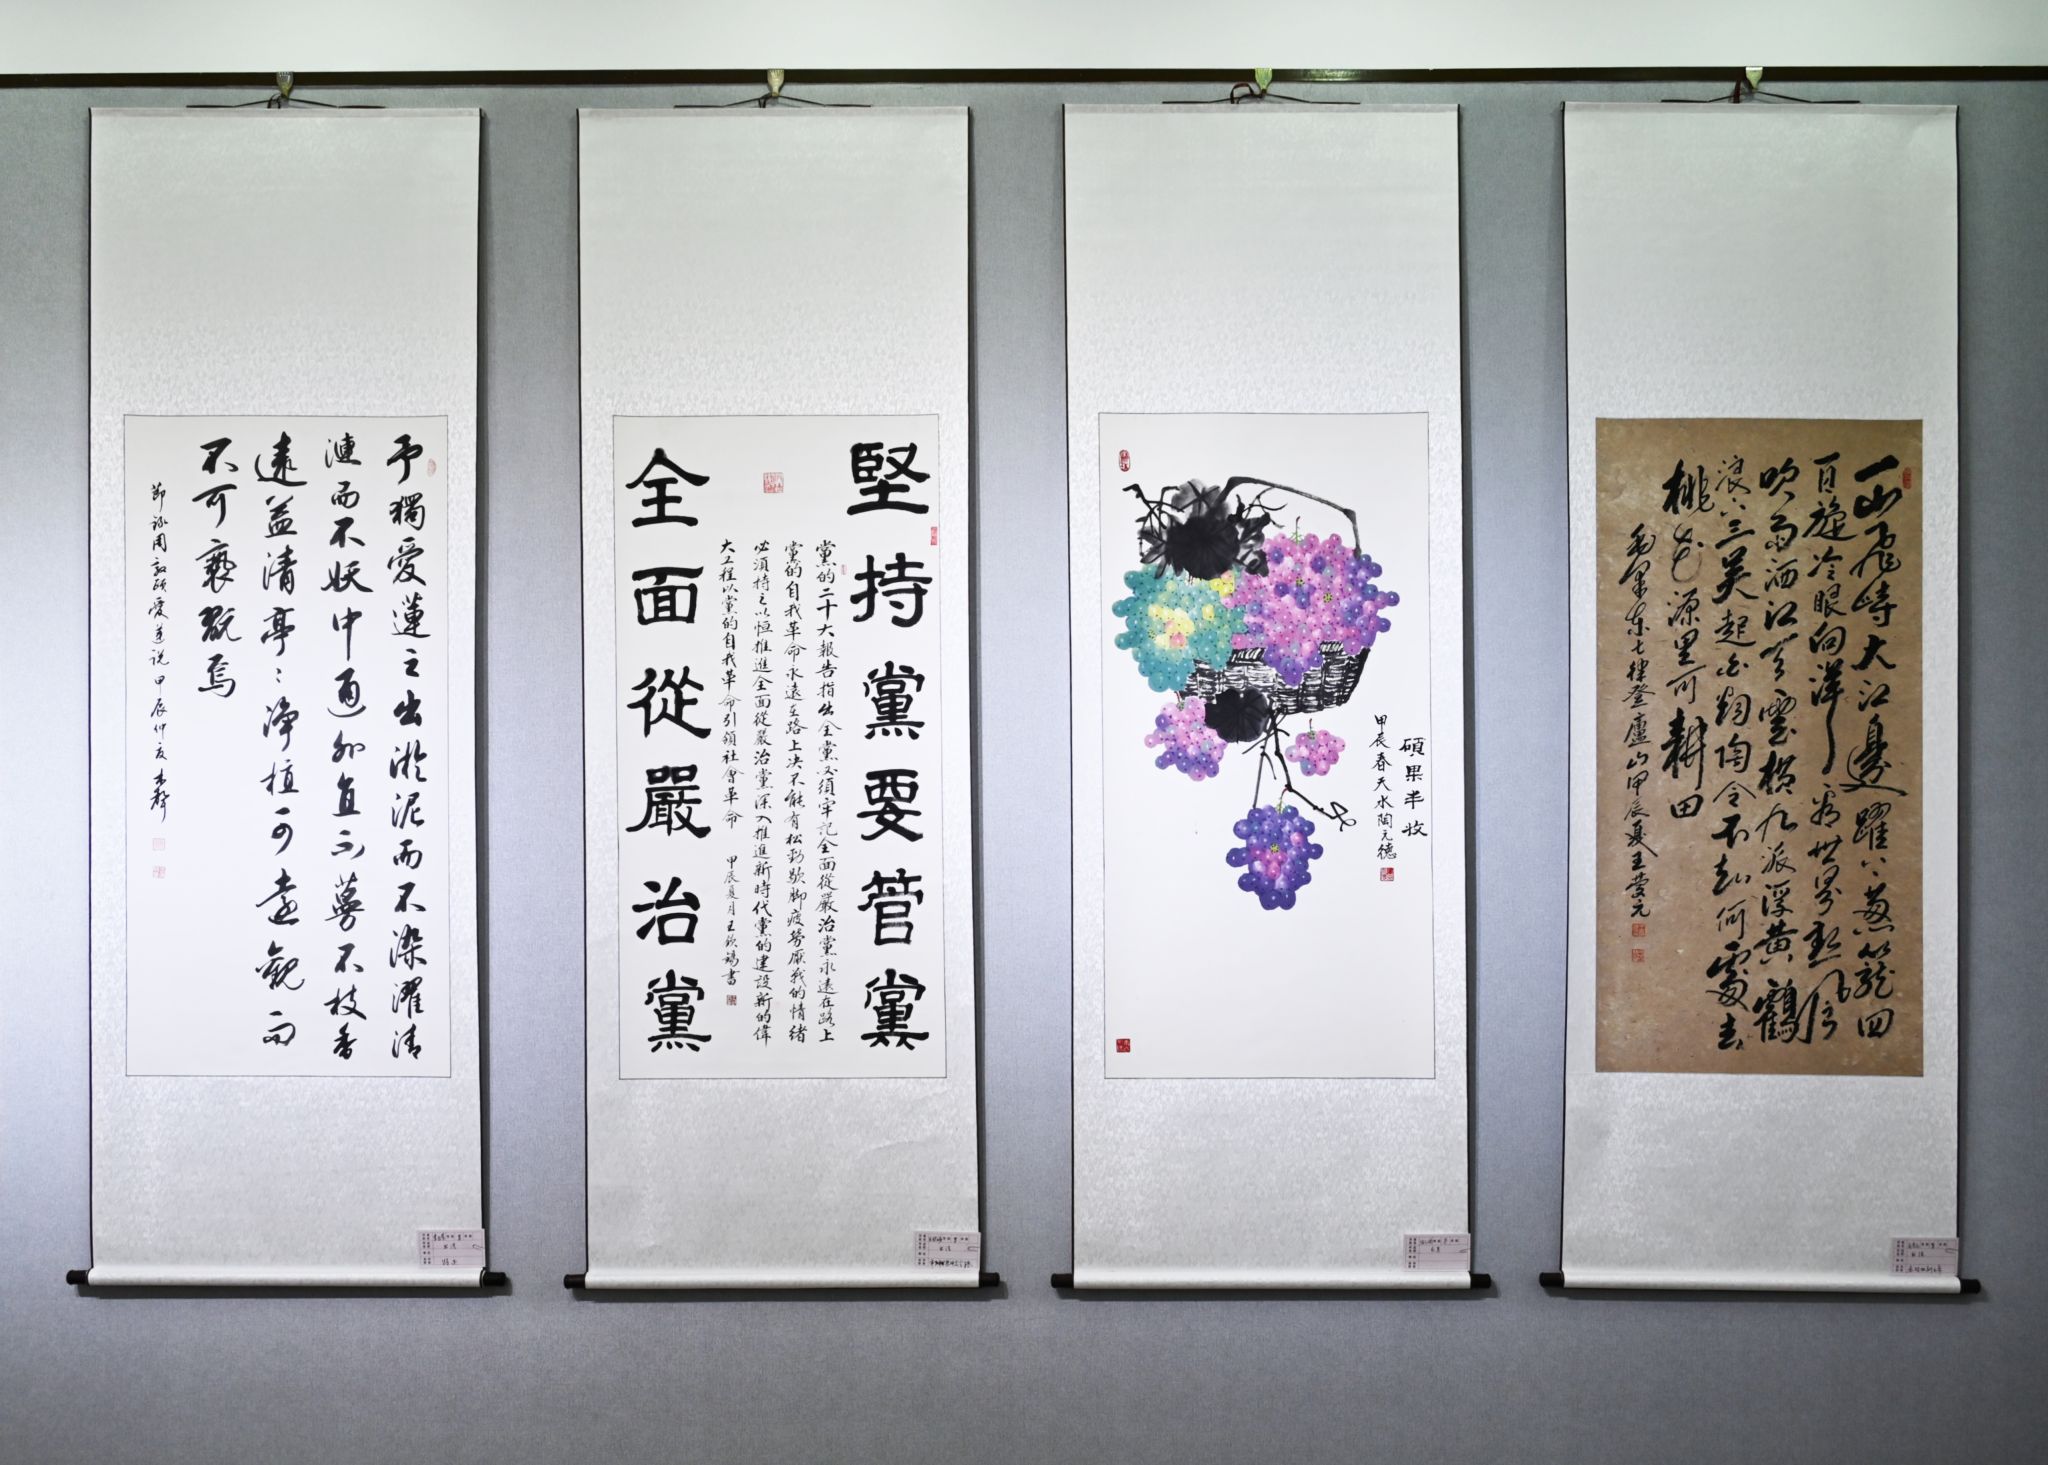 予獨愛蓮之出淤泥而不染濯清
漣而不妖中通外直不蔓不枝香
遠益清亭〻淨植可遠觀而
不可褻翫焉
節錄周敦頤愛蓮說 甲辰仲夏
堅持黨要管黨
黨的二十大報告指出全黨必須牢記全面從嚴治黨永遠在路上
黨的自我革命永遠在路上决不能有松勁歇脚疲勞厭戰的情緒
必須持之以恒推進全面從嚴治黨深入推進新時代黨的建設新的偉
大工程以黨的自我革命引領社會革命 甲辰夏月王欽錫書
全面從嚴治黨
碩果丰收
甲辰春天水陶元德
一山飛峙大江邊躍〻葱籠四
百旋冷眼向洋看世界熱風
吹雨洒江天雲橫九派浮黃鶴
浪〻三吴起白烟陶令不知何處去
桃花源里可耕田
毛澤東七律登廬山甲辰夏王愛元